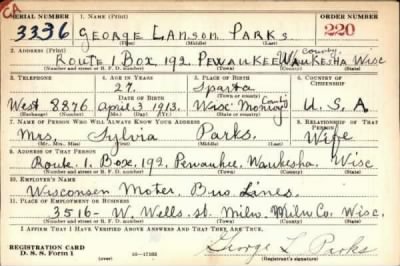 CA
SERIAL NUMBER 1. NAME (Print) ORDER NUMBER
3336 GEORGE LAMSON PARKS 220
(First) (Middle) (Last)
2. ADDRESS (Print)
ROUTE 1 BOX, 192, PEWAUKEE WAUKESHA County. WISC
(Number and street or R. F. D. number) (Town) (County) (State)
3. TELEPHONE 4. AGE IN YEARS 5. PLACE OF BIRTH 6. COUNTRY OF CITIZENSHIP
27. Sparta
DATE OF BIRTH
West 8876 April 3 1913. Wisc. Monroe County U.S.A
(Exchange) (Number) (Mo.) (Day) (Yr.) (State or country)
7. NAME OF PERSON WHO WILL ALWAYS KNOW YOUR ADDRESS 8. RELATIONSHIP OF THAT PERSON
Mrs. Sylvia Parks. Wife
(Mr., Mrs., Miss) (First) (Middle) (Last)
9. ADDRESS OF THAT PERSON
Route. 1. Box, 192, Pewaukee, Waukesha. Wisc
(Number and street or R. F. D. number) (Town) (County) (State)
10. EMPLOYER'S NAME
Wisconsin Moter. Bus Lines.
11. PLACE OF EMPLOYMENT OR BUSINESS
3516- W. Wells. st. Milw. Milw Co. Wisc.
(Number and street or R. F. D. number) (Town) (County) (State)
I AFFIRM THAT I HAVE VERIFIED ABOVE ANSWERS AND THAT THEY ARE TRUE.
REGISTRATION CARD George L Parks
D. S. S. Form 1 (Registrant's signature)